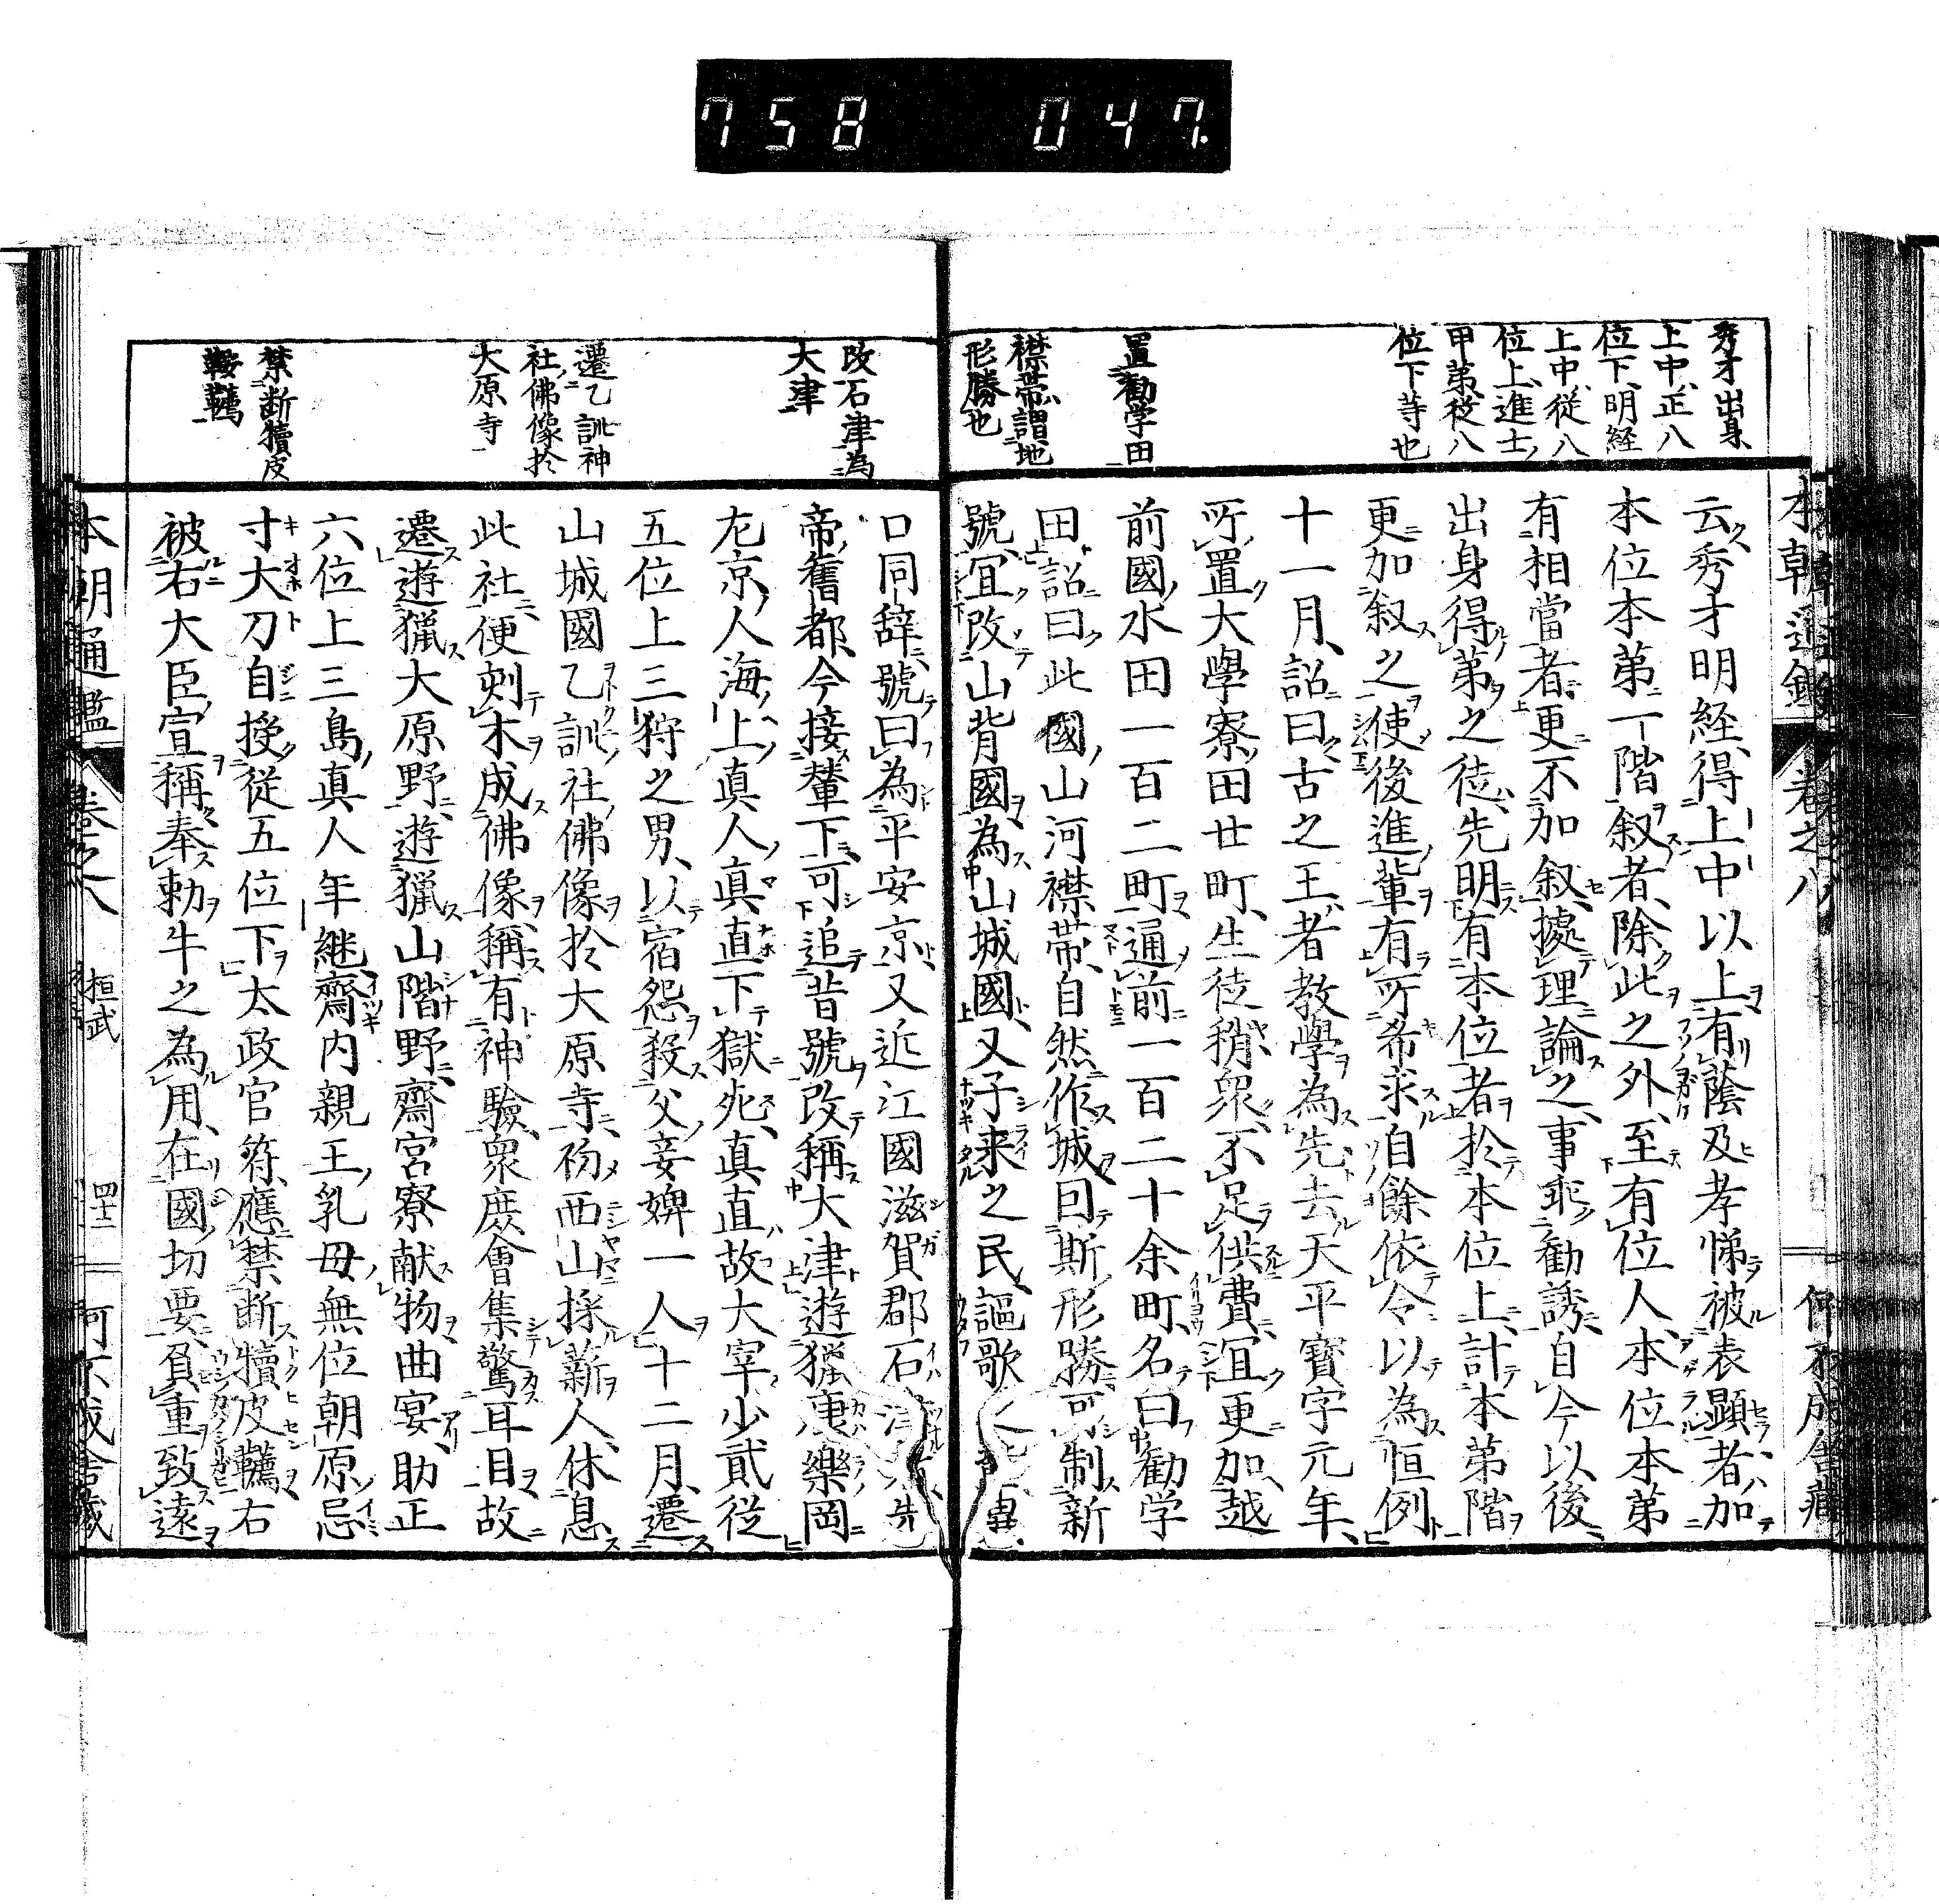 758 047.
秀才出身、
上中、正八
位下、明経
上中、従八
位上、進士、
甲第、従八
位下等也
置勧学田
襟帯謂地
形勝也
云秀才明経得上中以上有蔭及孝悌被表顕者加
本位本第一階叙者除此之外至有位人本位本第
有相當者更不加叙據理論之事乖勧誘自今以後
出身得第之徒先明有本位者於本位上計本第階
更加叙之使後進輩有所希求自餘依令以為恒例
十一月詔曰古之王者教學為先去天平寶字元年
所置大學寮田廿町生徒稍衆不足供費宜更加越
前國水田一百二町通前一百二十余町名曰勧学
田詔曰此國山河襟帯自然作城回斯形勝可制新
號宜改山背國為山城國又子来之民謳歌
改石津為
大津
遷乙訓神
社佛像於
大原寺
禁断犢皮
鞍韉
口同辞號曰為平安京又近江國滋賀郡石
帝舊都今接輦下可追昔號改稱大津遊獵康樂岡
左京人海上真人真直下獄死真直故大宰少貳従
五位上三狩之男以宿怨殺父妾婢一人十二月遷
山城國乙訓社佛像於大原寺初西山採薪人休息
此社便刻木成佛像稱有神驗衆庶會集驚耳目故
遷遊獵大原野遊獵山階野齋宮寮献物曲宴助正
六位上三島真人年継齋内親王乳母無位朝原忌
寸大刀自授従五位下太政官符應禁断犢皮韉右
被右大臣宣稱奉勅牛之為用在國切要負重致遠
本朝通鑑 巻之八 桓武